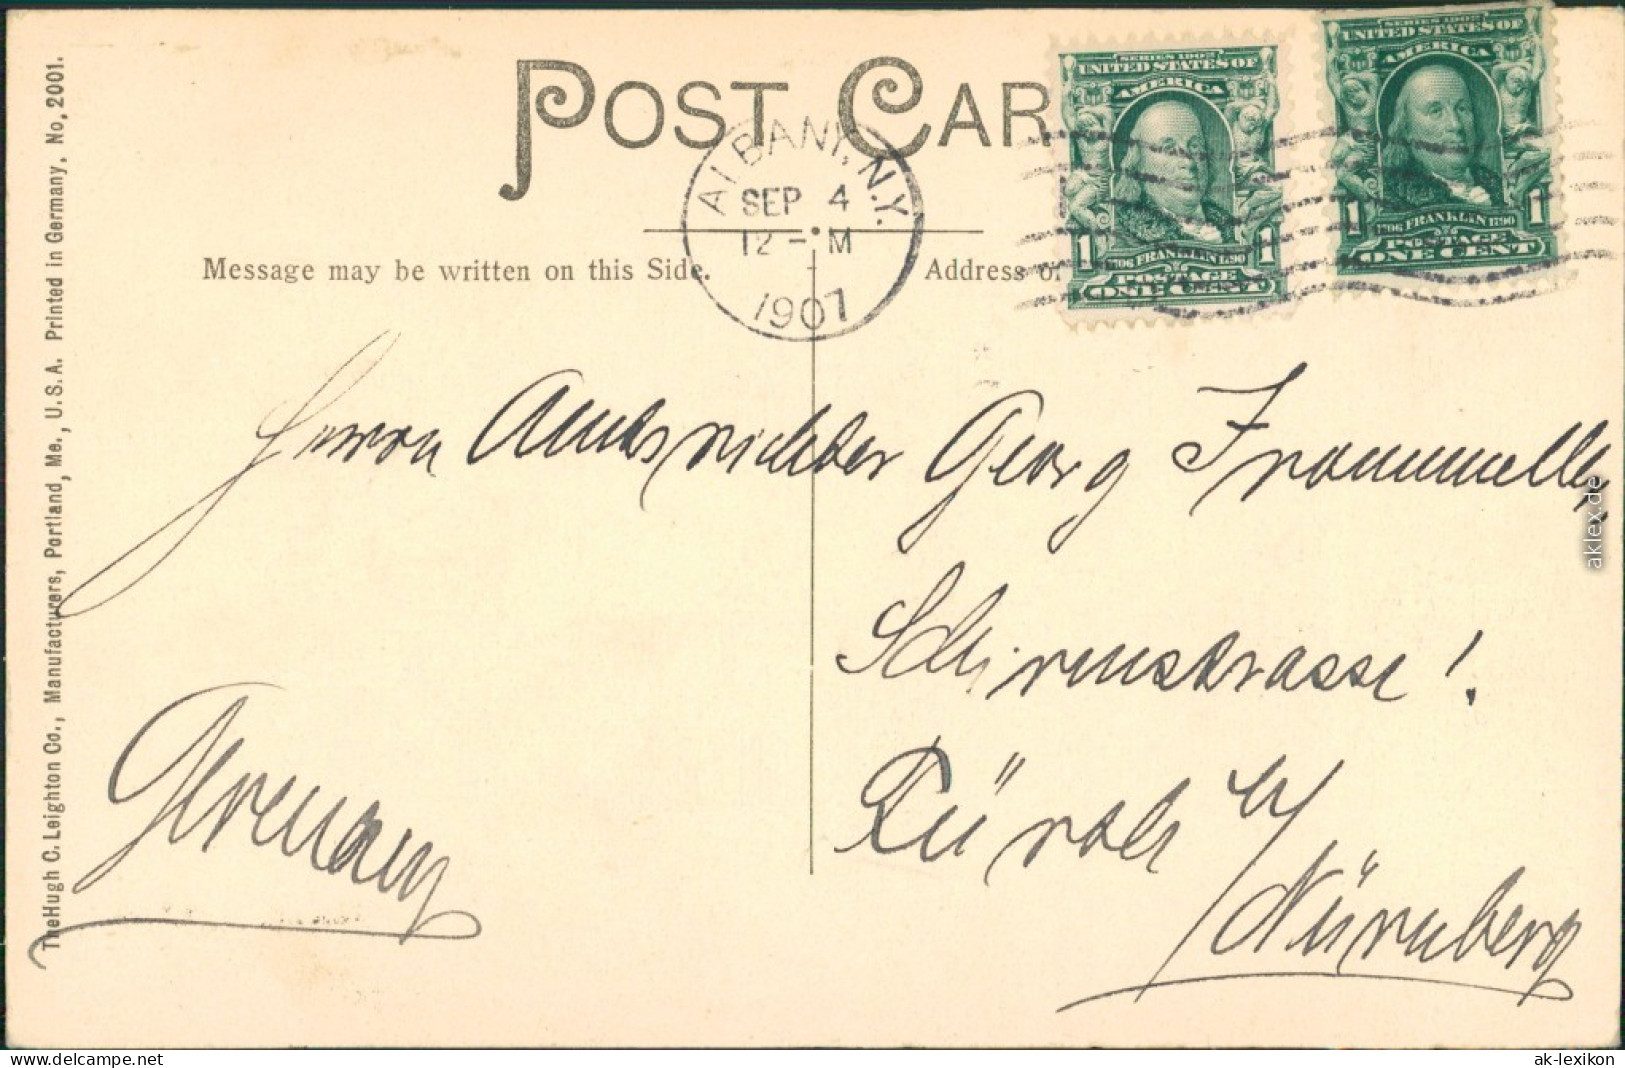 POST CAR
SERIES 1902
UNITED STATES OF
AMERICA
1 1706 FRANKLIN 1790 1
POSTAGE
ONE CENT
SERIES 1902
UNITED STATES OF
AMERICA
1 1706 FRANKLIN 1790 1
POSTAGE
ONE CENT
ALBANY, N.Y.
SEP 4
12 - M
1907
Message may be written on this Side.
Address o
Herrn Amtsrichter Georg
Schirenstrasse!
a/
Nürnberg
Germany
The Hugh C. Leighton Co., Manufacturers, Portland, Me., U.S.A. Printed in Germany, No, 2001.
aklex.de
www.delcampe.net
ak-lexikon